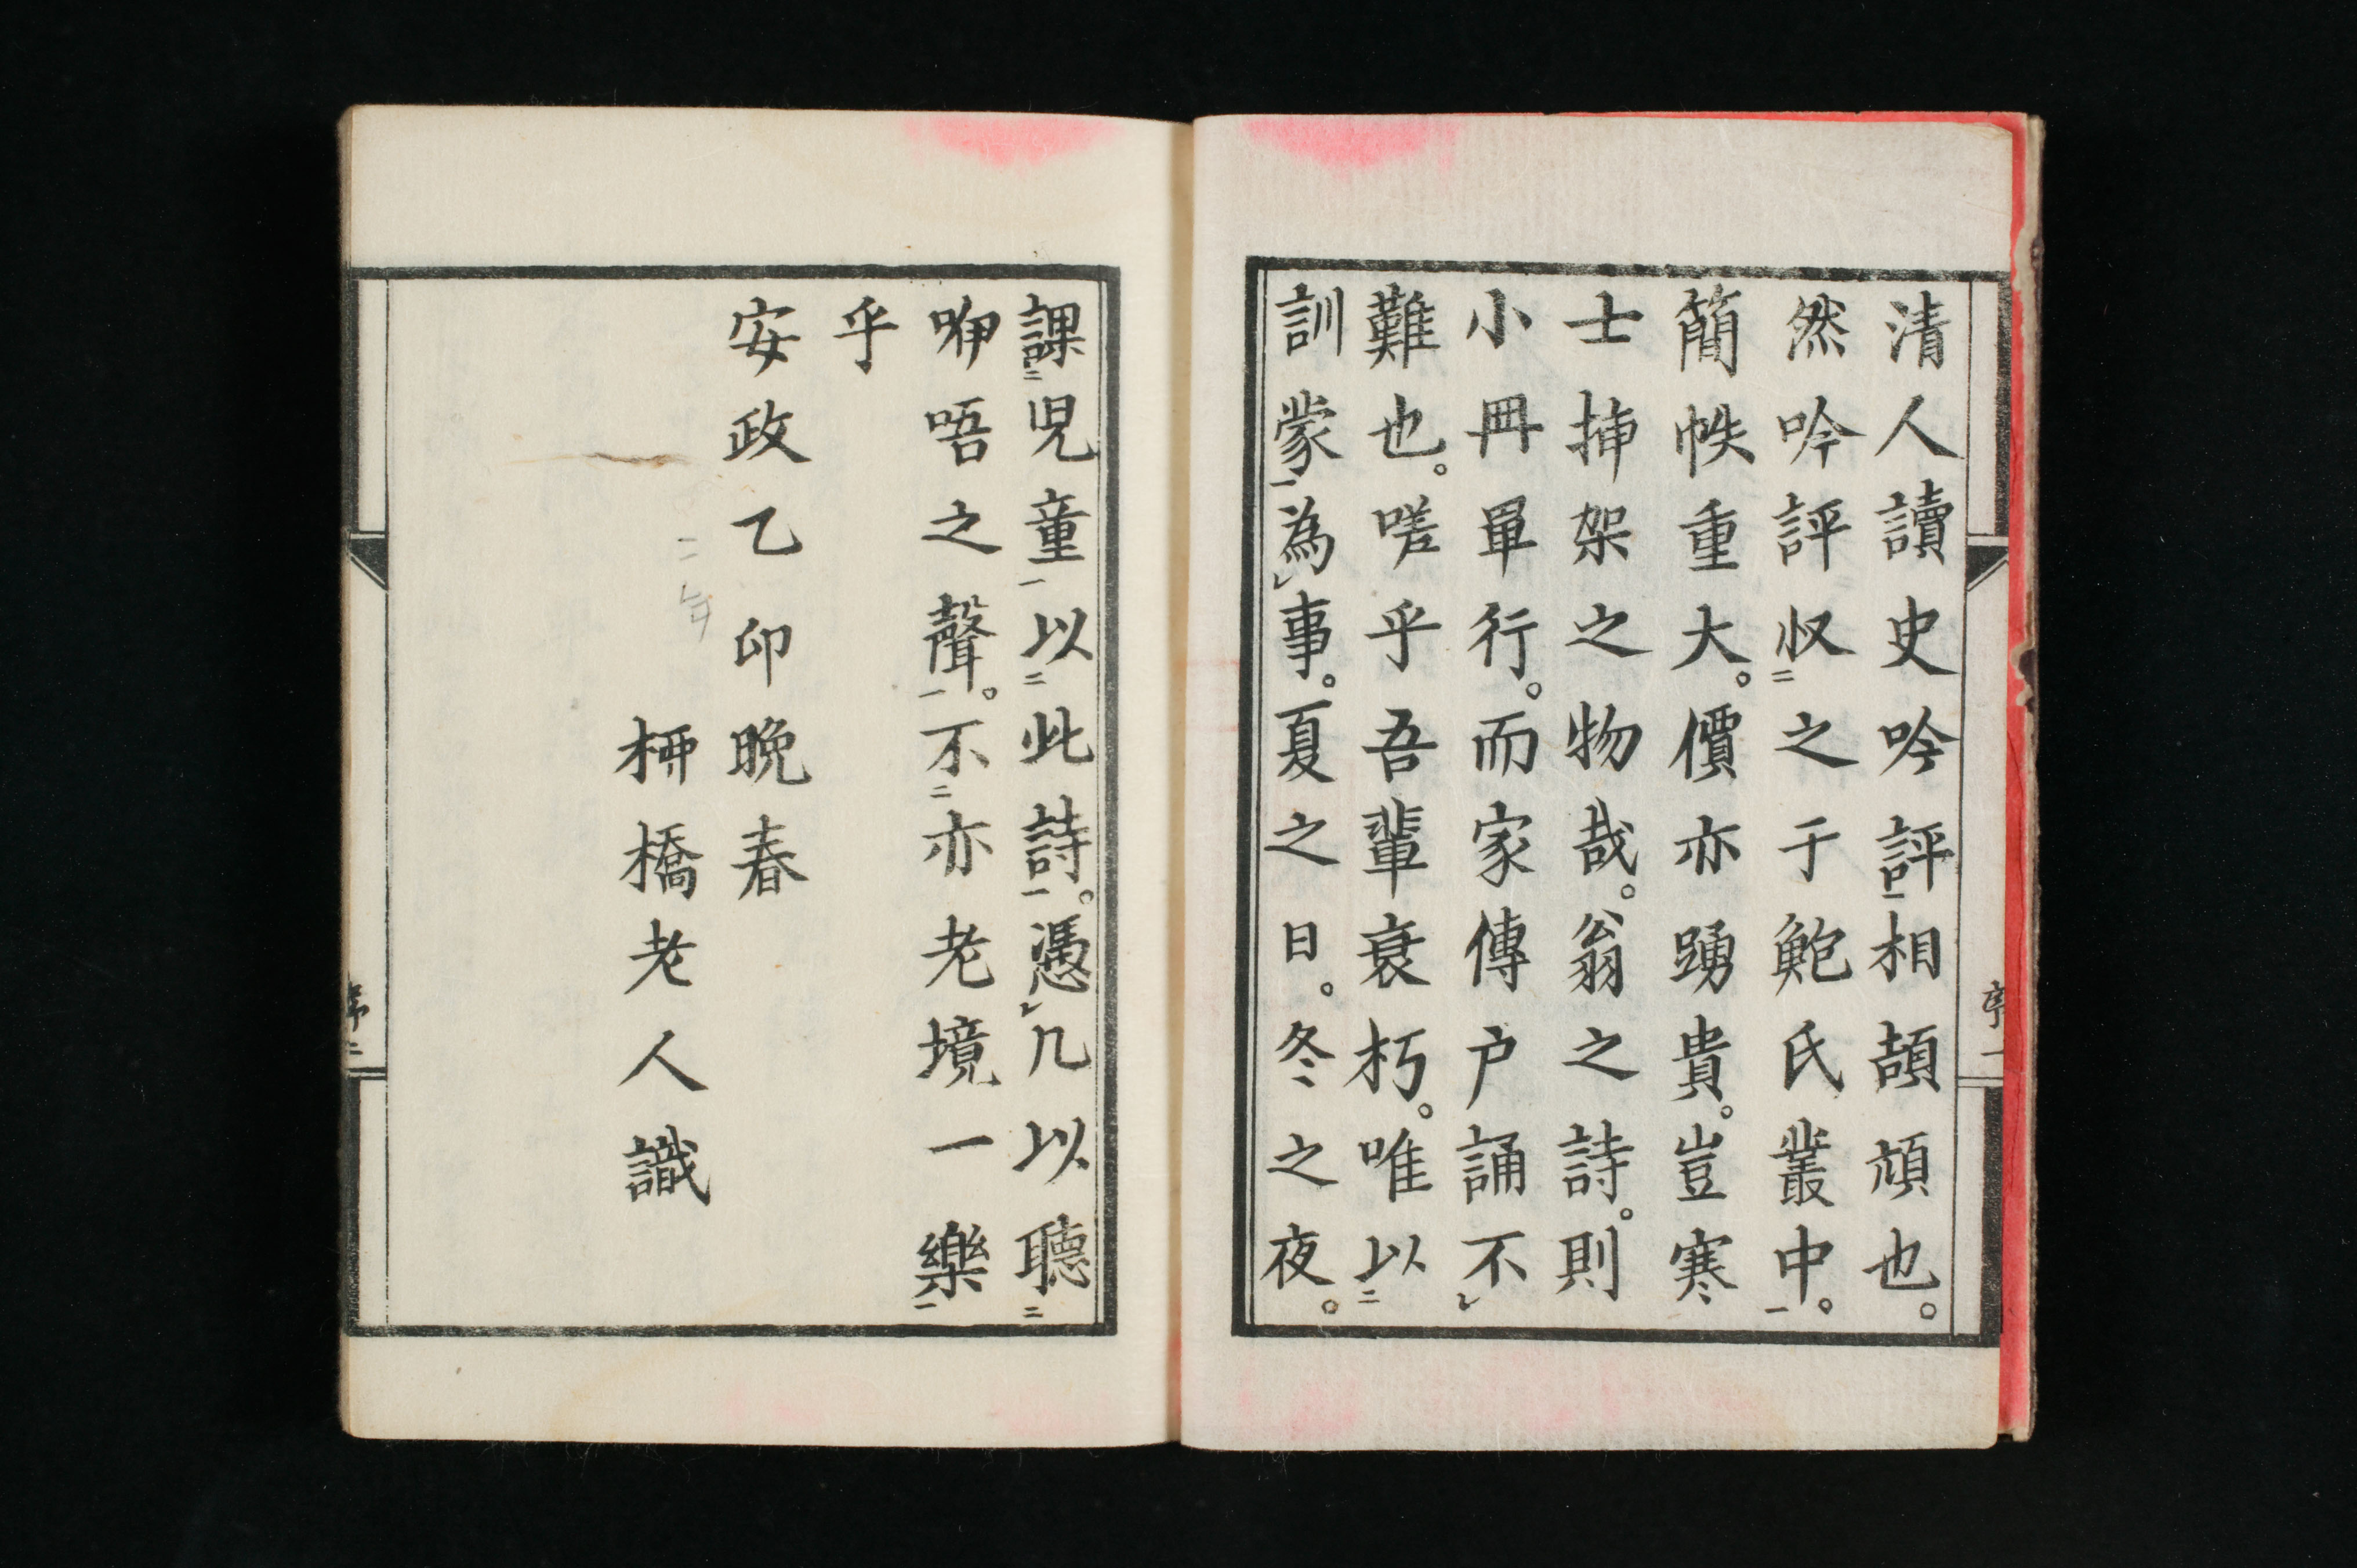 清人讀史吟評相頡頏也。
然吟評収之于鮑氏叢中。
簡帙重大。價亦踴貴。豈寒
士挿架之物哉。翁之詩。則
小冊單行。而家傳戶誦不
難也。嗟乎吾輩衰朽。唯以
訓蒙為事。夏之日。冬之夜。
序一
課児童以此詩。憑几以聽
咿唔之聲。不亦老境一樂
乎
安政乙卯晩春
二年
柳橋老人識
序二